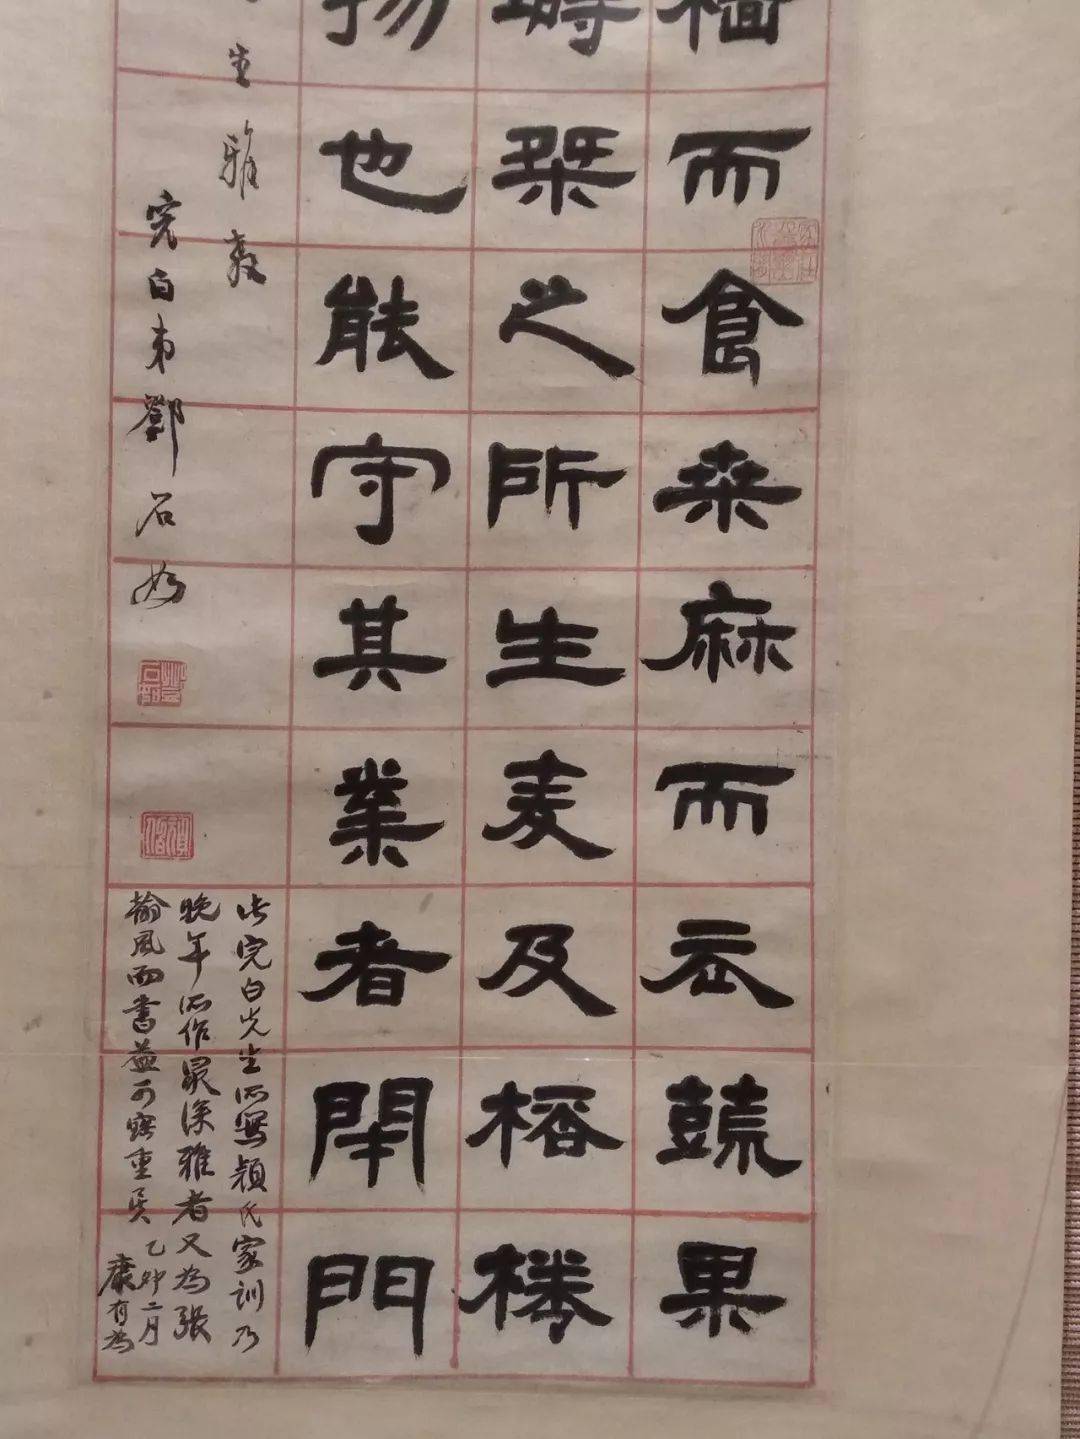 穡而食桒麻而衣蔬果
塒桀之所生爰及
物也能守其業者閉門
生雅教
完白弟鄧石如
此完白先生所寫顏氏家訓乃
晚年所作最深雅者又為張
翰風而書益可寶重矣 乙卯二月
康有為